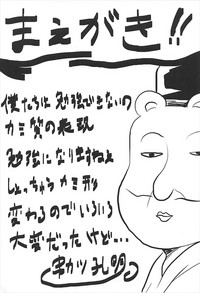 まえがき!!
僕たちは勉強できないの
カミ質の表現
勉強になりますねと
しょっちゅうカミ形
変わるのでいろいろ
大変だったけど…
串カツ孔明